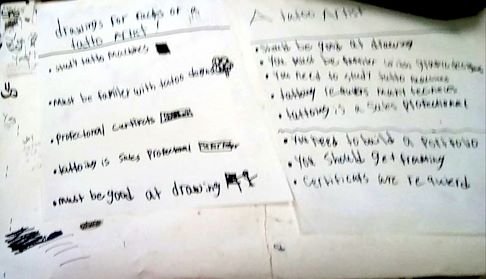 drawings for facts of a
tatto Artist!
• study tatto machines
• must be familer with tatoo
• profectional certifects
• tattoing is sales profectional
• must be good at drawing
A tatoo Artist
• should be good at drawing
• You must be familer with
• You need to study tattoo machines
• tattoing requires many
• tattoing is a sales profectional
• You need to build a portfolio
• You should get training
• certificats are requierd